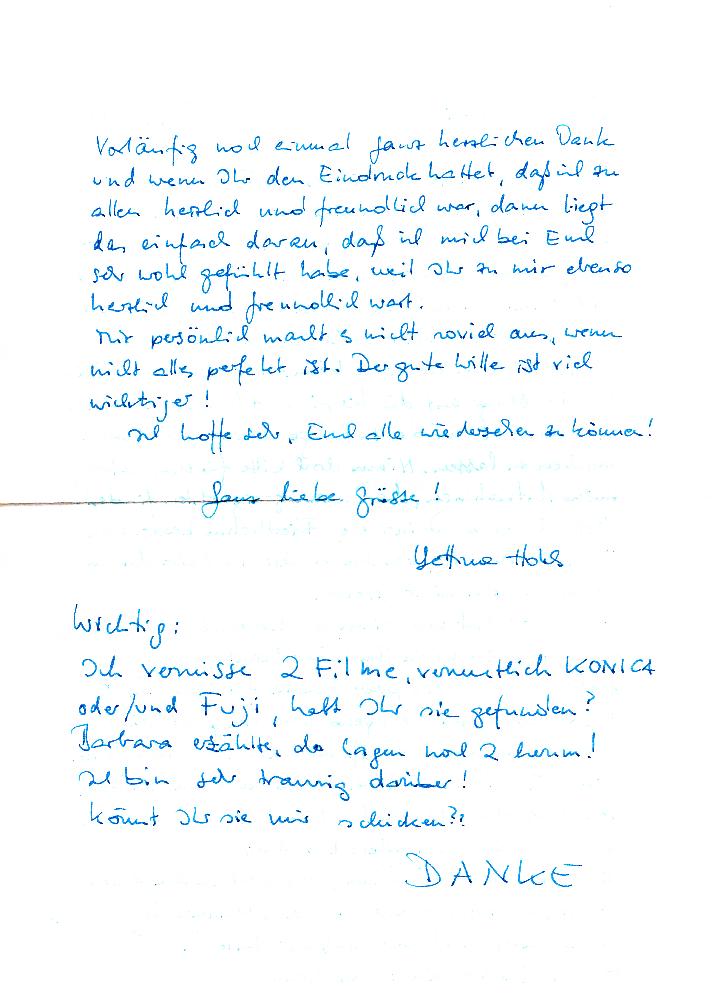 Vorläufig noch einmal ganz herzlichen Dank
und wenn Ihr den Eindruck hattet, daß ich zu
allen herzlich und freundlich war, dann liegt
das einfach daran, daß ich mich bei Euch
sehr wohl gefühlt habe, weil Ihr zu mir ebenso
herzlich und freundlich wart.
Mir persönlich macht es nicht soviel aus, wenn
nicht alles perfekt ist. Der gute Wille ist viel
wichtiger!
Ich hoffe sehr, Euch alle wiedersehen zu können!
Ganz liebe Grüsse!
Wichtig:
Ich vermisse 2 Filme, vermutlich KONICA
oder/und Fuji, habt Ihr sie gefunden?
Barbara erzählte, da lagen noch 2 herum!
Ich bin sehr traurig darüber!
Könnt Ihr sie mir schicken??
DANKE